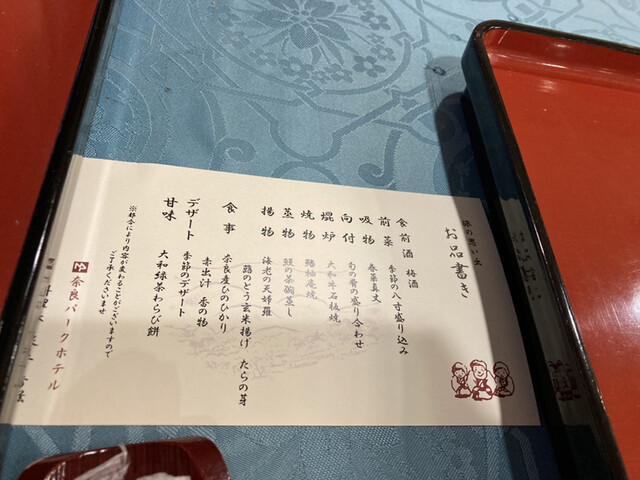 旅の思い出
お品書き
食前酒 梅酒
前菜 季節の八寸盛り込み
吸物 春菜真丈
向付 旬の肴の盛り合わせ
焜炉 大和牛石板焼
焼物 鰆柚庵焼
蒸物 鰻の茶碗蒸し
揚物 海老の天婦羅
鶏のとう玄米揚げ たらの芽
食事 奈良産ひのひかり
赤出汁 香の物
デザート 季節のデザート
甘味 大和緑茶わらび餅
※都合により内容が変わることがございますので
ご了承くださいませ
奈良パークホテル